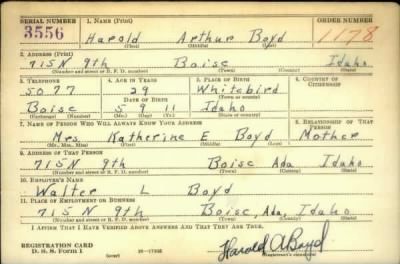 SERIAL NUMBER 1. NAME (Print) ORDER NUMBER
3556 Harold Arthur Boyd 1178
(First) (Middle) (Last)
2. ADDRESS (Print)
715 N 9th Boise Idaho
(Number and street or R. F. D. number) (Town) (County) (State)
3. TELEPHONE 4. AGE IN YEARS 5. PLACE OF BIRTH 6. COUNTRY OF CITIZENSHIP
5077 29 Whitebird
DATE OF BIRTH (Town or county)
Boise 5 9 11 Idaho
(Exchange) (Number) (Mo.) (Day) (Yr.) (State or country)
7. NAME OF PERSON WHO WILL ALWAYS KNOW YOUR ADDRESS 8. RELATIONSHIP OF THAT PERSON
Mrs. Katherine E Boyd Mother
(Mr., Mrs., Miss) (First) (Middle) (Last)
9. ADDRESS OF THAT PERSON
715 N 9th Boise Ada Idaho
(Number and street or R. F. D. number) (Town) (County) (State)
10. EMPLOYER'S NAME
Walter L Boyd
11. PLACE OF EMPLOYMENT OR BUSINESS
715 N 9th Boise, Ada, Idaho
(Number and street or R. F. D. number) (Town) (County) (State)
I AFFIRM THAT I HAVE VERIFIED ABOVE ANSWERS AND THAT THEY ARE TRUE.
REGISTRATION CARD
D. S. S. FORM 1 (over) Harold A Boyd
(Registrant's signature)